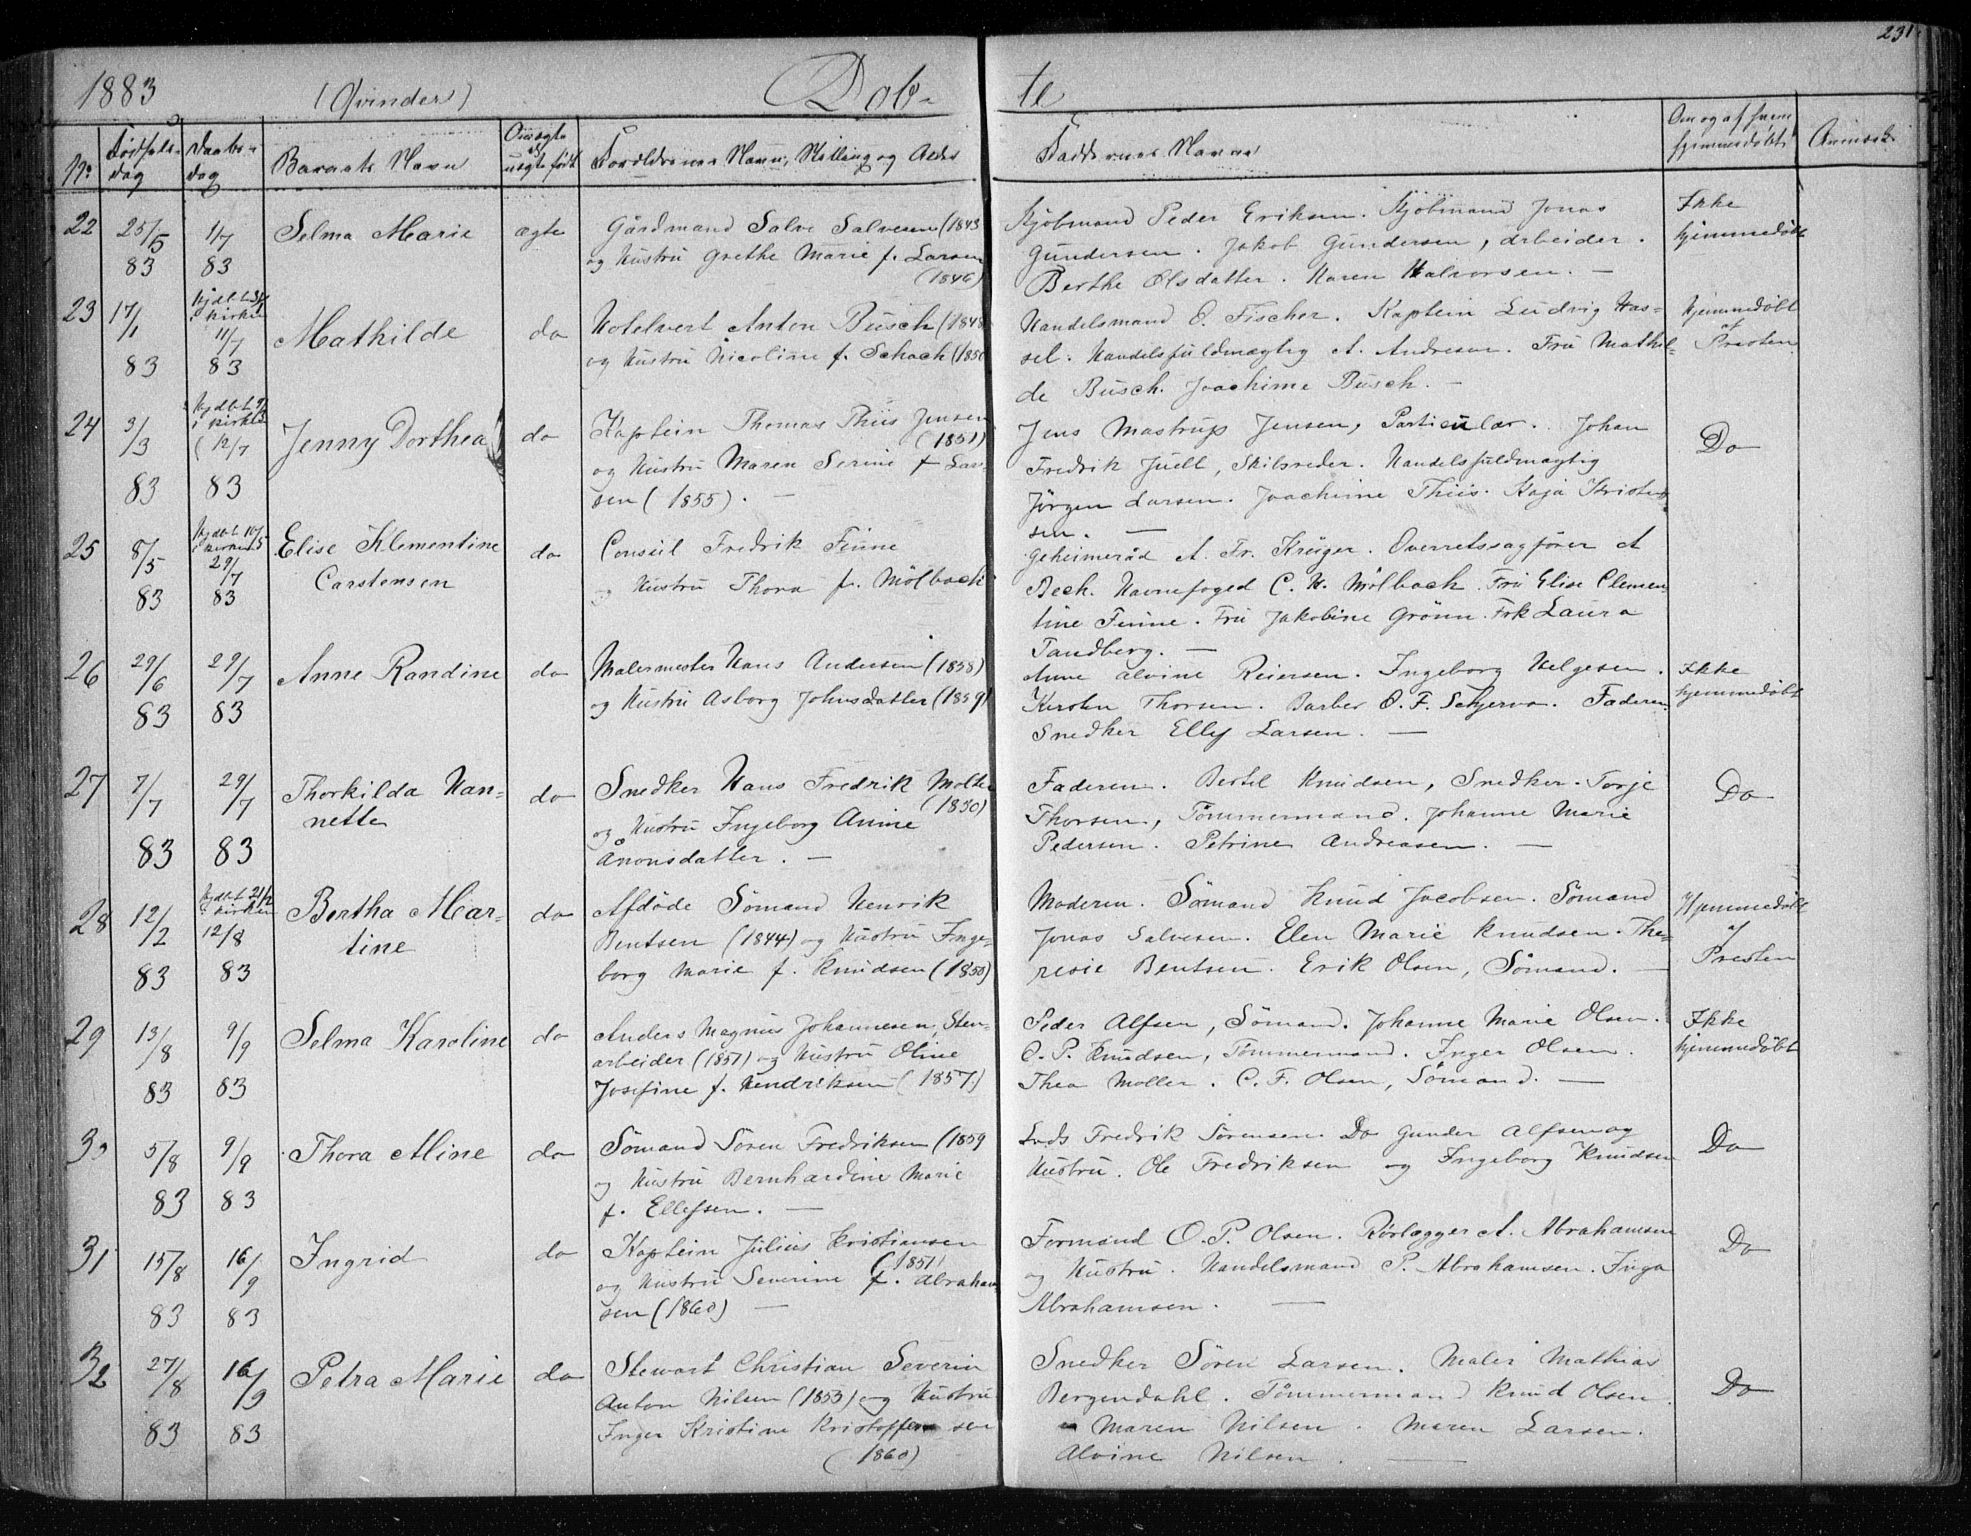 231
1883 (Qvinder) Døb- te
No Fødsels- dag Daabs- dag Barnets Navn Om ægte el. uægte født Forældrenes Navn, Stilling og Alder Faddernes Navne Om og af hvem hjemmedøbt Anmærk.
22 25/5 83 1/7 83 Selma Marie ægte
Gårdmand Salve Salvesen (1843
og Hustru Grethe Marie f. Larsen
(1846)
Skjøbmand Peder Eriksen. Skjøbmand Jonas
Gundersen. Jakob Gundersen, Arbeider.
Berthe Olsdatter. Karen Halvorsen. —
Ikke
hjemmedøbt
23 17/1 83 Hjdbt 3/1
i Kirken
11/7
83
Mathilde do
Hotelvert Anton Busch (1848
og Hustru Nicoline f. Schach (1850
Handelsmand O. Fischer. Kaptein Ludvig Has-
sel. Handelsfuldmægtig A. Andresen. Fru Mathil-
de Busch. Joachime Busch. —
Hjemmedøbt
af
Presten
24 3/3 83 Hjdbt
i Kirken
12/7
83
Jenny Dorthea do
Kaptein Thomas Thiis Jensen
(1851)
og Hustru Maren Serine f Lar-
sen (1855). —
Jens Mastrup Jensen, Particulær. Johan
Fredrik Juell, Skibsreder. Handelsfuldmægtig
Jørgen Larsen. Joachime Thiis. Kaja Kristen-
sen. —
Do
25 8/5 83 Hjdbt 10/5
i Kirken
29/7
83
Elise Klementine
Carstensen
do
Consul Fredrik Finne
og Hustru Thora f. Mølbach
Geheimeråd A. Fr. Krüger. Overretssagfører A
Bech. Havnefoged C. H. Mølbach. Fru Elise Clemen-
tine Finne. Fru Jakobine Grønn. Frk Laura
Tandberg. —
26 29/6 83 29/7 83 Anne Randine do
Malermester Hans Andersen (1858)
og Hustru Asborg Johnsdatter (1859)
Anne Alvine Reiersen. Ingeborg Helgesen.
Kirsten Thorsen. Barber O. F. Schjerva. Faderen
Snedker Ellef Larsen. —
Ikke
hjemmedøbt
27 7/7 83 29/7 83 Thorkilda Nan-
nette
do
Snedker Hans Fredrik Molte
(1850)
og Hustru Ingeborg Anine
Ånonsdatter. —
Faderen. Bertel Knudsen, Snedker. Torje
Thorsen, Tømmermand. Johanne Marie
Pedersen. Petrine Andreasen. —
Do
28 12/2 83 Hjdbt 21/2
i Kirken
12/8
83
Bertha Mar-
tine
do
Afdøde Sømand Henrik
Bentsen (1844) og Hustru Inge-
borg Marie f. Knudsen (1850)
Moderen. Sømand Knud Jacobsen. Sømand
Jonas Salvesen. Elen Marie Knudsen. The-
resie Bentsen. Erik Olsen, Sømand. —
Hjemmedøbt
af
Presten
29 13/8 83 9/9 83 Selma Karoline do
Anders Magnus Johannesen, Sten-
arbeider (1851) og Hustru Oline
Josefine f. Hendriksen (1857)
Peder Alfsen, Sømand. Johanne Marie Olsen.
O. P. Knudsen, Tømmermand. Inger Olsen.
Thea Møller. C. F. Olsen, Sømand. —
Ikke
hjemmedøbt
30 5/8 83 9/9 83 Thora Aline do
Sømand Søren Fredriksen (1859
og Hustru Bernhardine Marie
f. Ellefsen. —
Lods Fredrik Sørensen. Do Gunder Alfsen og
Hustru. Ole Fredriksen og Ingeborg Knudsen
Do
31 15/8 83 16/9 83 Ingrid do
Kaptein Julius Kristiansen
(1851)
og Hustru Severine f. Abraham-
sen (1860) —
Formand O. P. Olsen. Rørlægger A. Abrahamsen
og Hustru. Handelsmand P. Abrahamsen. Inga
Abrahamsen. —
Do
32 27/8 83 16/9 83 Petra Marie do
Stewart Christian Severin
Anton Nilsen (1853) og Hustru
Inger Kristine Kristoffersen
(1860)
Snedker Søren Larsen. Maler Mathias
Bergendahl. Tømmermand Knud Olsen.
Maren Nilsen. Maren Larsen.
Alvine Nilsen. —
Do